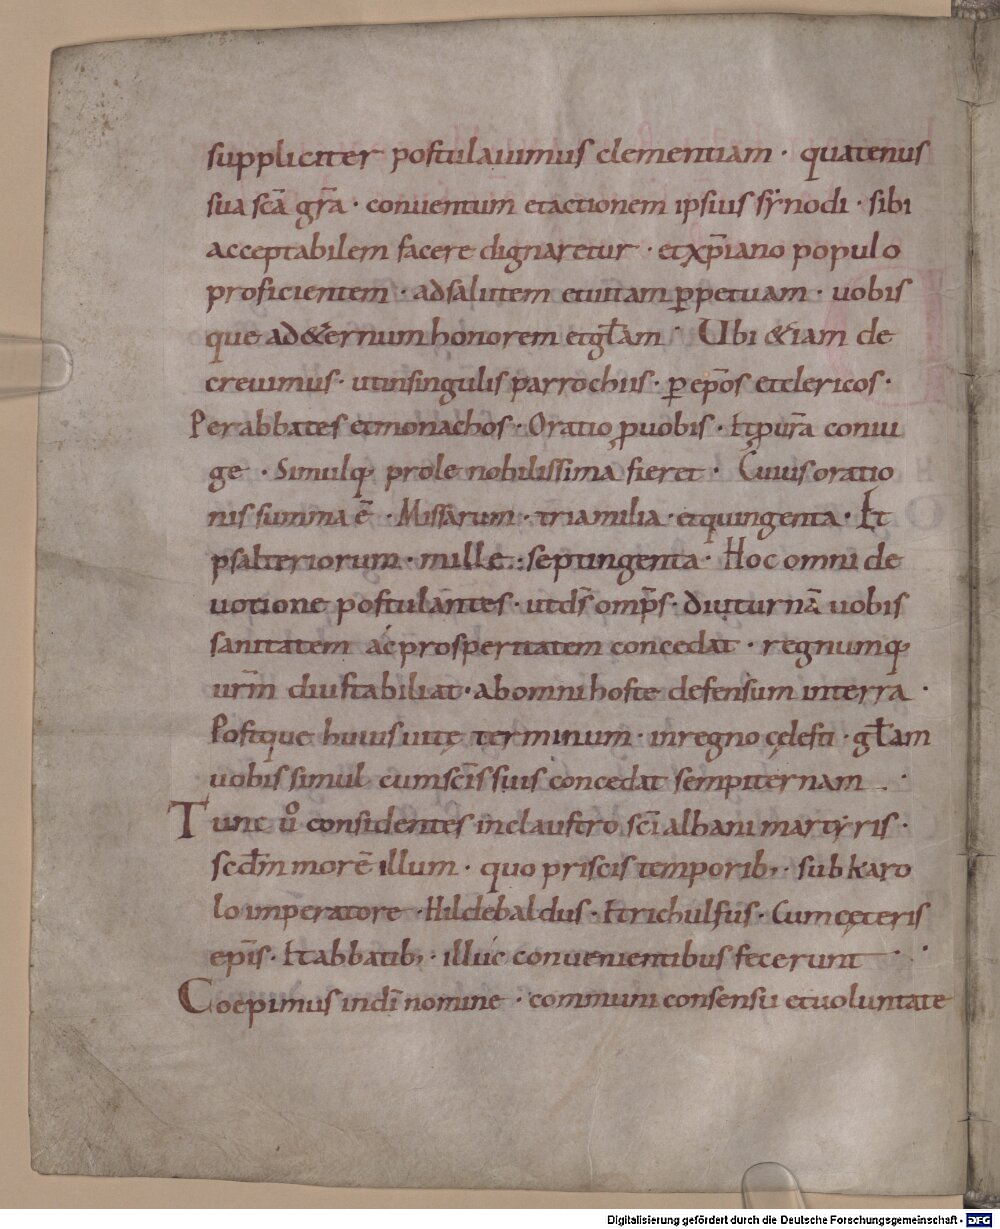 suppliciter postulavimus clementiam · quatenus
sua scā gr̄a · conventum et actionem ipsius synodi · sibi
acceptabilem facere dignaretur · et xp̄iano populo
proficientem · ad salutem et vitam p̄petuam · vobis
que ad &ernum honorem et gl̄am · Ubi &iam de
crevimus · ut in singulis parrochiis · p̄ ep̄os et clericos ·
Per abbates et monachos · Oratio ꝓ vobis · Et ꝓ vr̄a coniu
ge · Simulq; prole nobilissima fieret · Cuius oratio
nis summa ē · Missarum · tria milia · et quingenta · Et
psalteriorum · mille · septingenta · Hoc omni de
uotione postulantes · ut ds̄ omp̄s · diuturnā uobis
sanitatem ac prosperitatem concedat · regnumq;
ur̄m diu stabiliat · ab omni hoste defensum in terra ·
Postque huius uitę terminum · in regno cęlesti · gl̄am
uobis simul cum scīs suis concedat sempiternam ·
Tunc ů considentes in claustro scī albani martyris ·
scd̄m morē illum · quo priscis temporib; · sub karo
lo imperatore · Hildebaldus · Et richulfus · Cum cęteris
ep̄is · Et abbatib; · illuc convenientibus fecerunt ·
Coepimus in dī nomine · communi consensu et uoluntate
Digitalisierung gefördert durch die Deutsche Forschungsgemeinschaft - DFG